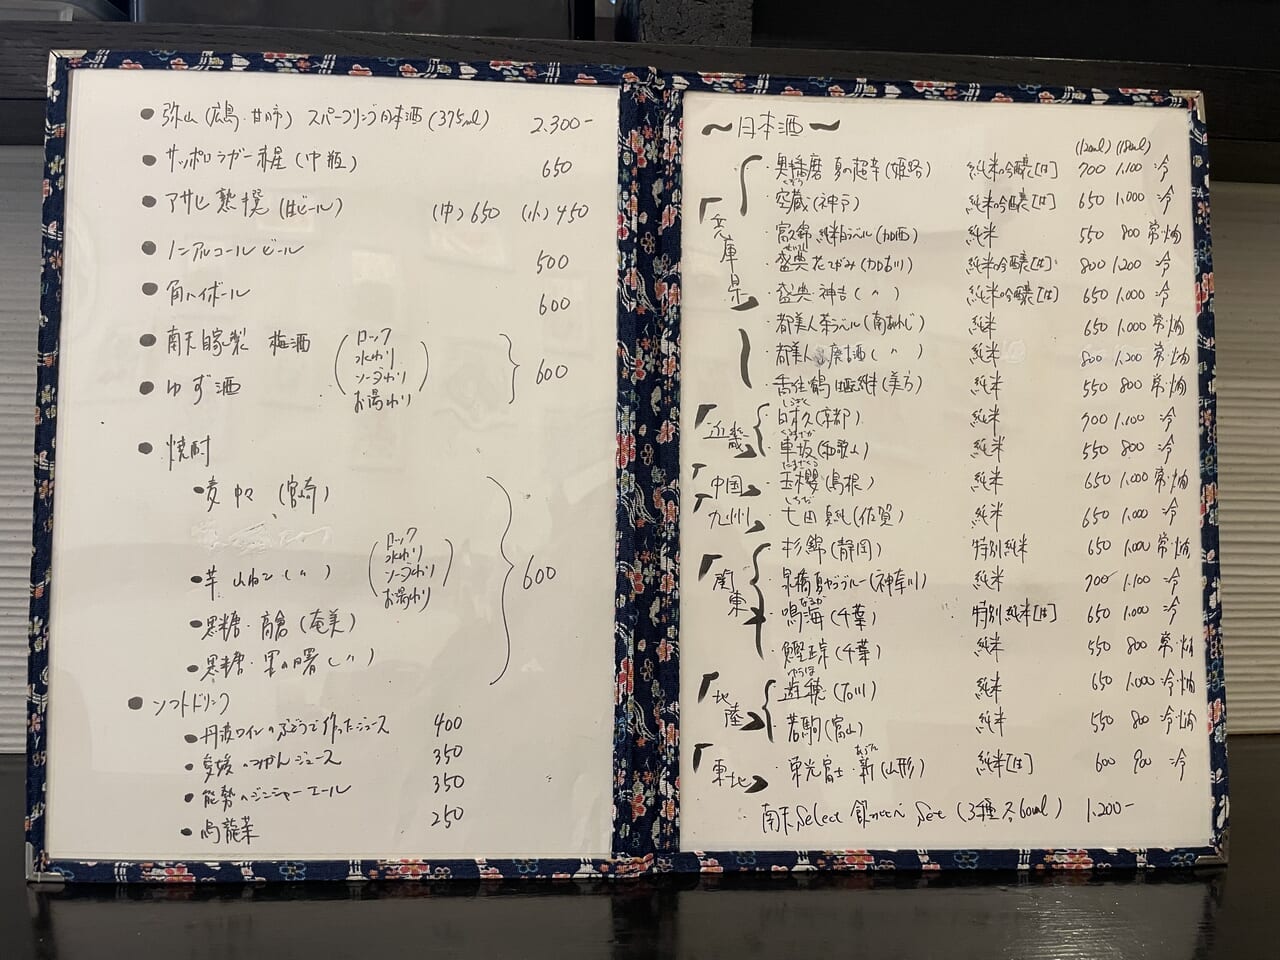 弥山(広島・廿日市) スパークリング日本酒(375ml) 2.300-
サッポロラガー赤星(中瓶) 650
アサヒ熟撰(生ビール) (中)650 (小)450
ノンアルコールビール 500
角ハイボール 600
南天自家製 梅酒
ゆず酒
(ロック
水わり
ソーダわり
お湯わり) 600
焼酎
麦 中々(宮崎)
芋 山ねこ(〃)
黒糖・高倉(奄美)
黒糖・里の曙(〃)
(ロック
水わり
ソーダわり
お湯わり) 600
ソフトドリンク
丹波ワインのぶどうで作ったジュース 400
愛媛のみかんジュース 350
能勢のジンジャーエール 350
烏龍茶 250
〜日本酒〜
(120ml) (180ml)
兵庫県
奥播磨 夏の超辛(姫路) 純米吟醸[は] 700 1.100 冷
空蔵(神戸) 純米吟醸[は] 650 1.000 冷
富久錦 純米ラベル(加西) 純米 550 800 常・燗
盛典 花てがみ(加古川) 純米吟醸[は] 800 1.200 冷
盛典・神吉(〃) 純米吟醸[は] 650 1.000 冷
都美人茶ラベル(南あわじ) 純米 650 1.000 常・燗
都美人 山廃酒(〃) 純米 800 1.200 常・燗
香住鶴 山廃純米(美方) 純米 550 800 常・燗
近畿
日本久(京都) 純米 700 1.100 冷
くるまざか
車坂(和歌山) 純米 550 800 冷
中国
玉櫻(島根) 純米 650 1.000 常・燗
九州
しちだ
七田 純(佐賀) 純米 650 1.000 冷
関東
杉錦(静岡) 特別純米 650 1.000 常・燗
泉橋 夏ヤゴブルー(神奈川) 純米 700 1.100 冷
なるか
鳴海(千葉) 特別純米[は] 650 1.000 冷
鰹正宗(千葉) 純米 550 800 常・燗
北陸
ゆうほ
遊穂(石川) 純米 650 1.000 冷・燗
若駒(富山) 純米 550 800 冷・燗
東北
栄光冨士・新(山形) 純米[は] 600 900 冷
南天Select 飲みくらべSet(3種各60ml) 1.200-